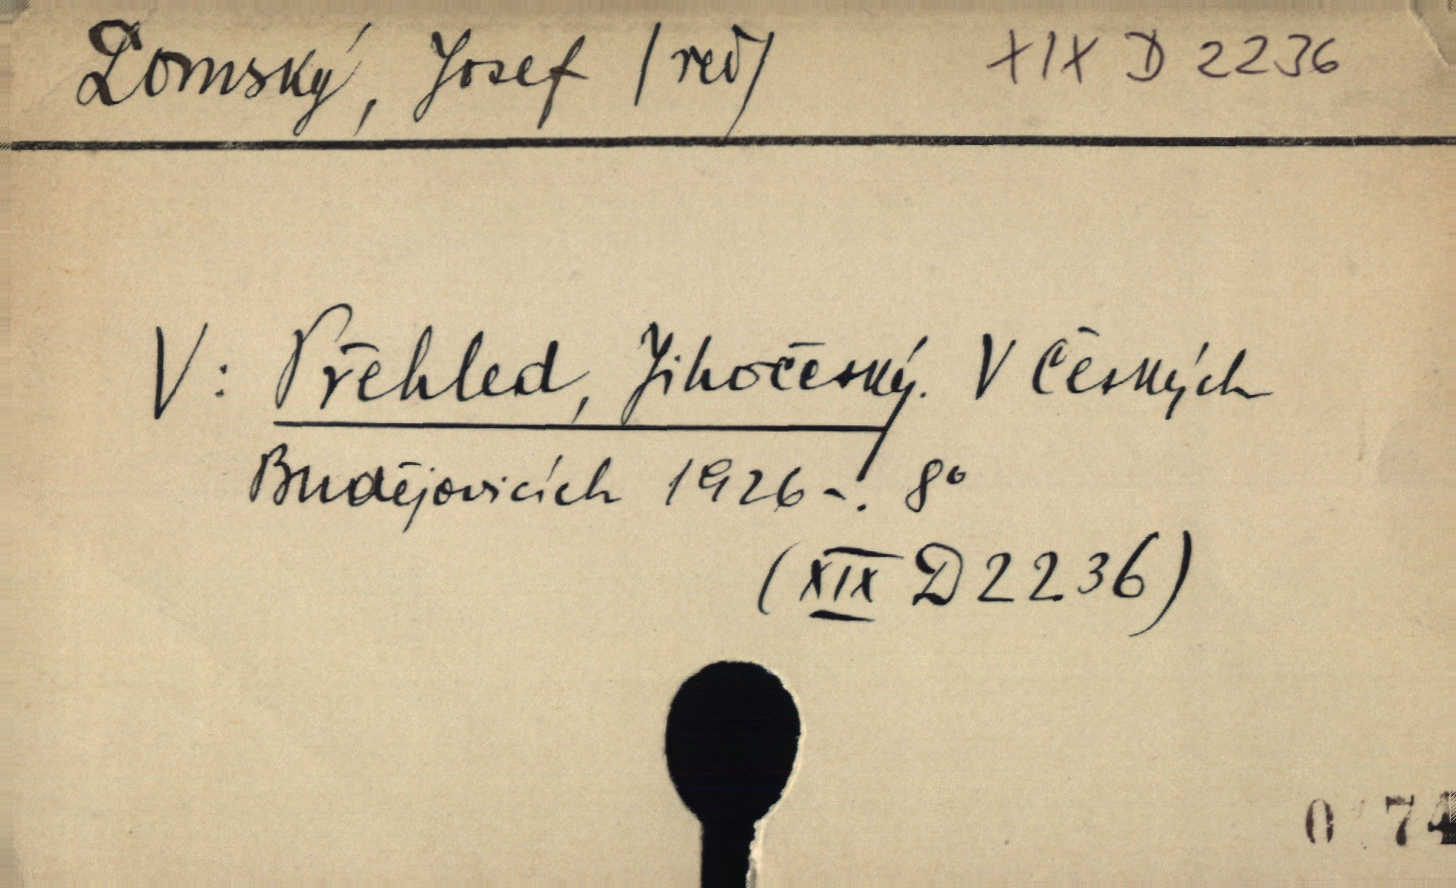 Lomský, Josef /red/ XIX D 2236
V: Přehled, Jihočeský. V Českých
Budějovicích 1926 -. 8°
(XIX D 2236)
0 74